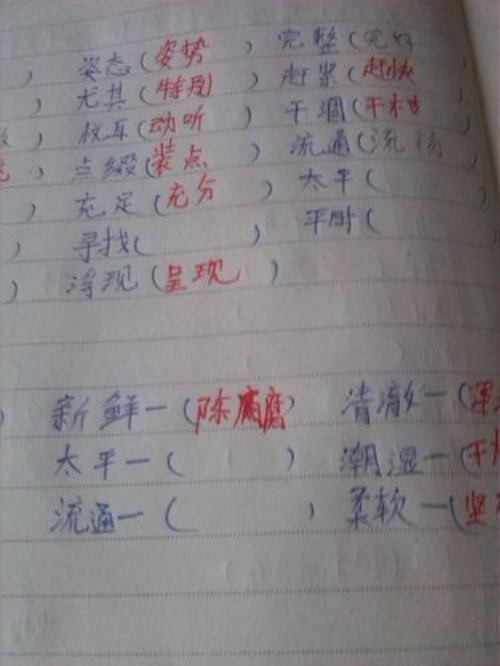 ) 姿态(姿势) 完整(完好
) 尤其(特别) 赶紧(赶快
) 悦耳(动听) 干涸(干枯
) 点缀(装点) 流通(流畅
) 充足(充分) 太平(
) 寻找( ) 平时(
) 浮现(呈现)
) 新鲜一(陈腐) 清澈一(浑
太平一( ) 潮湿一(干
流通一( ) 柔软一(坚